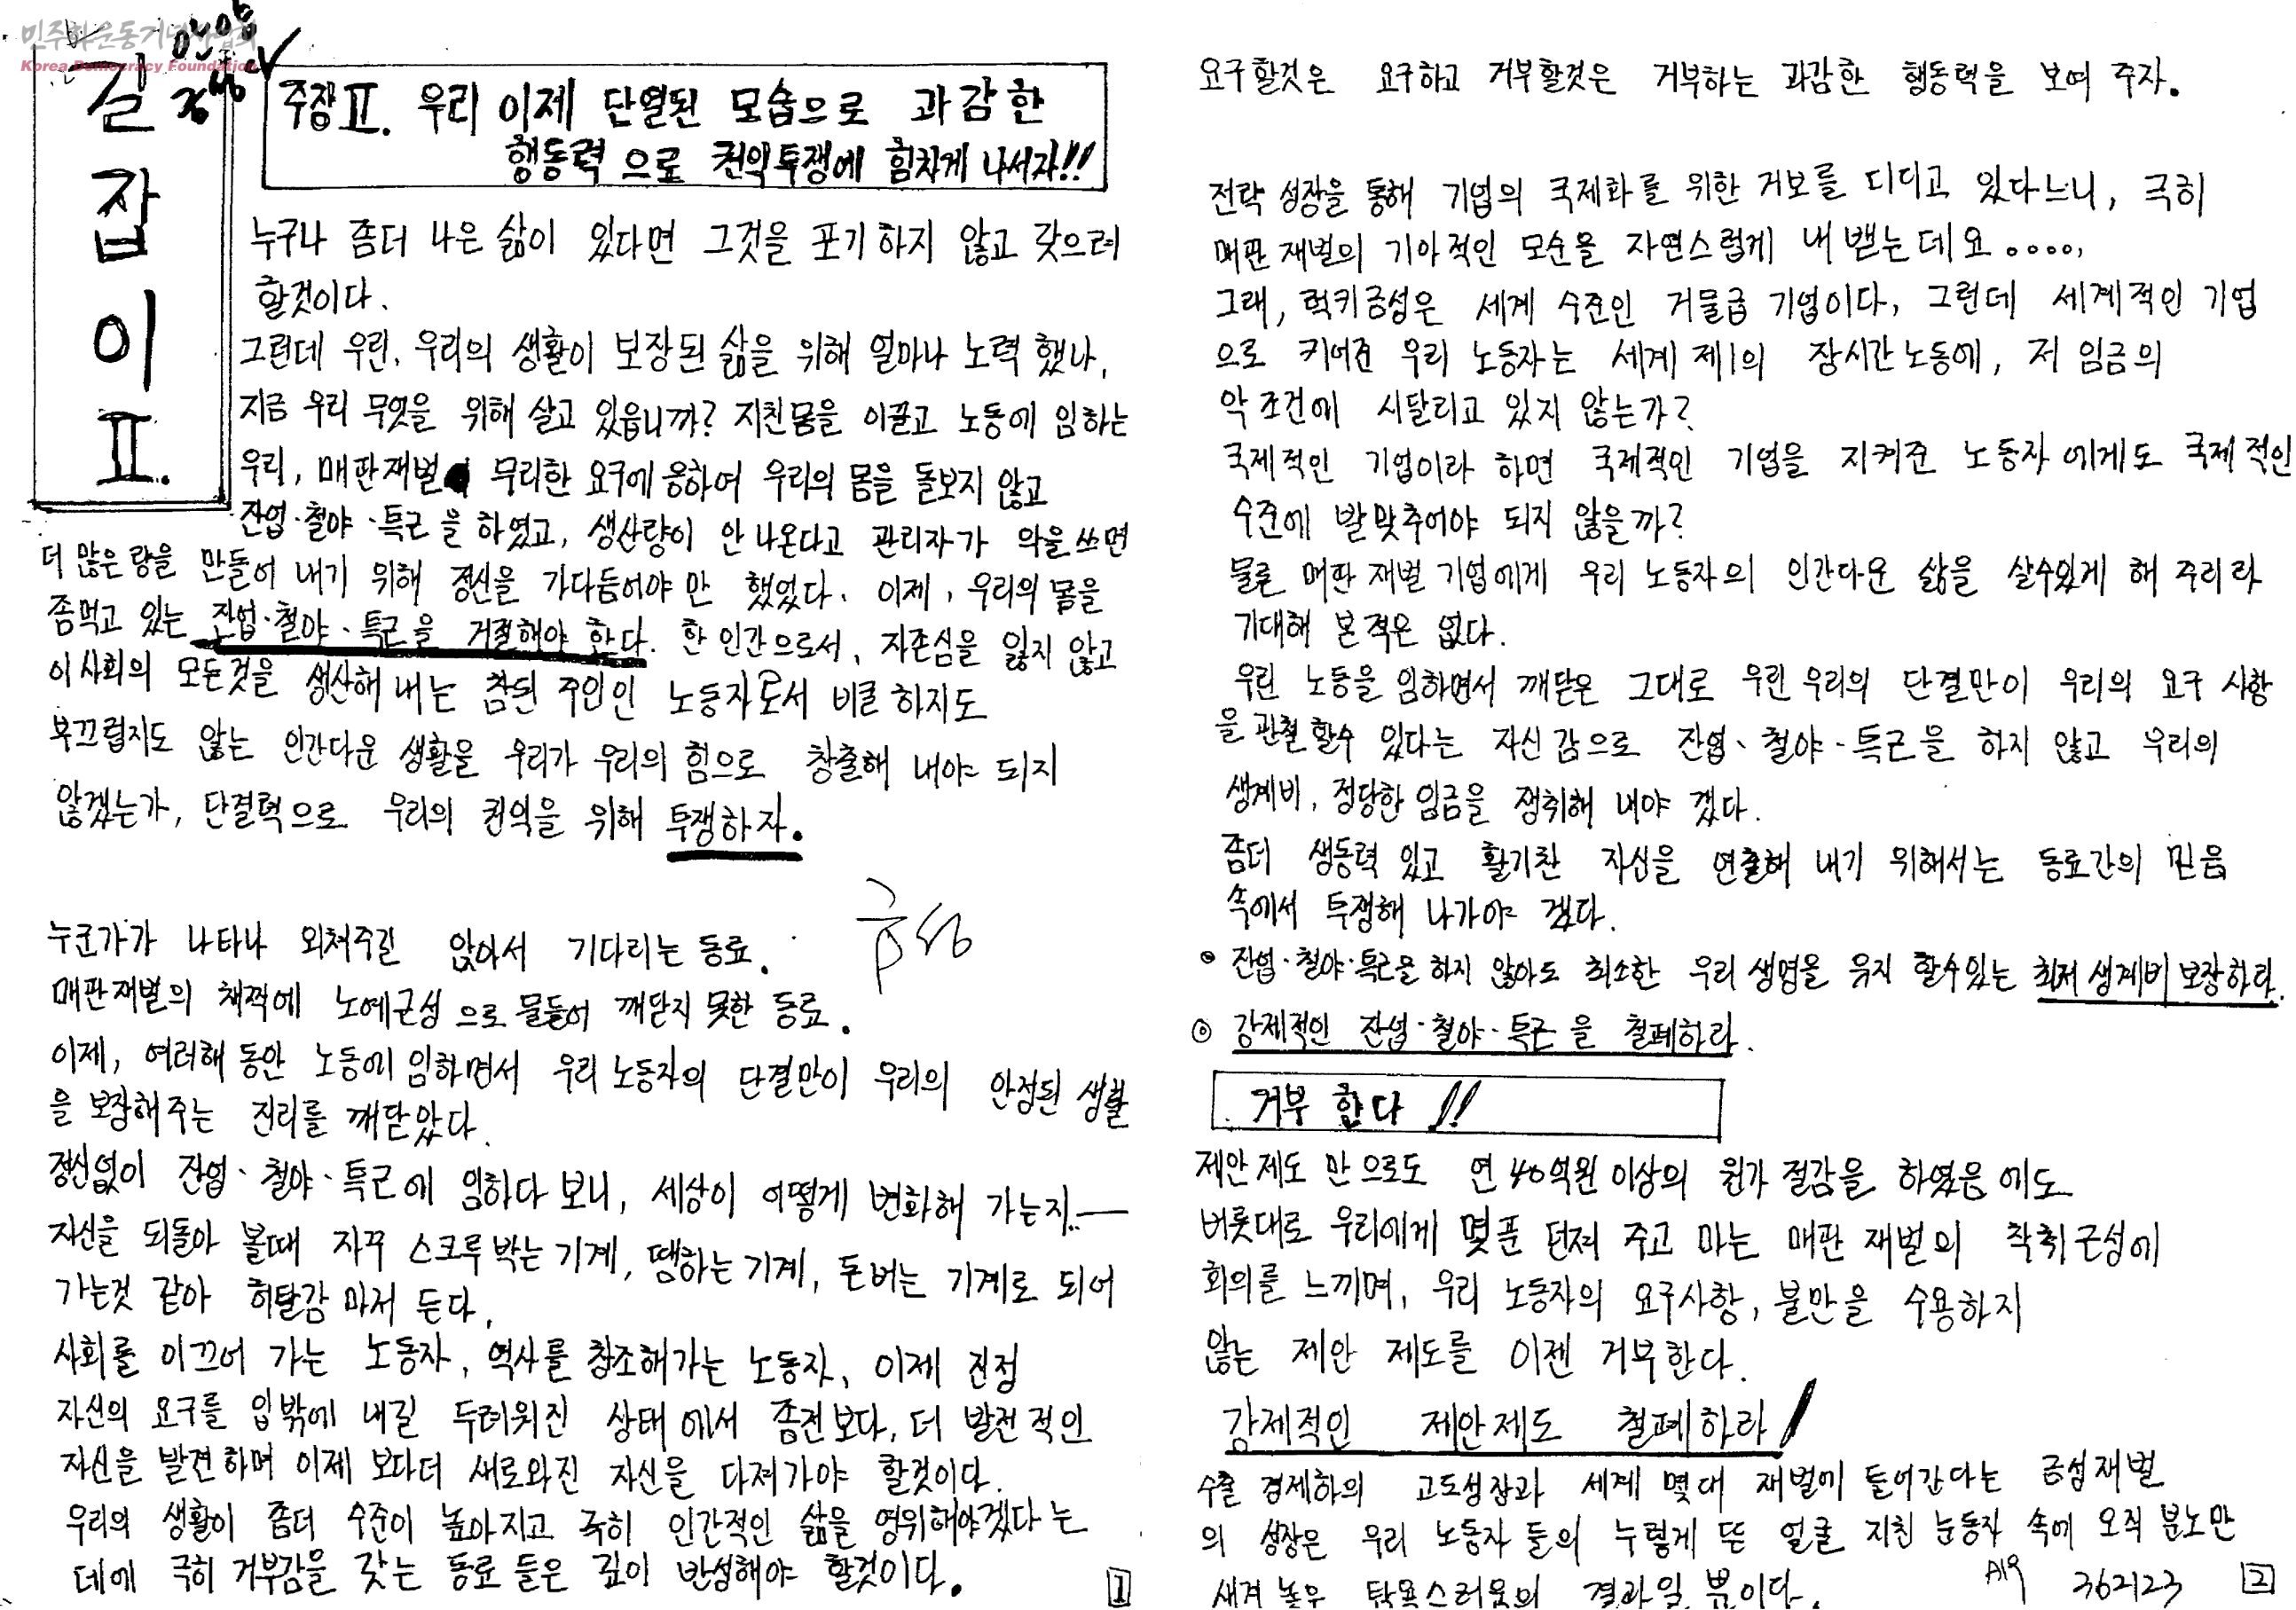 민주화운동기념사업회
Korea Democracy Foundation
길잡이 II.
주장 II. 우리 이제 단열된 모습으로 과감한
행동력으로 권익투쟁에 힘차게 나서자!!
누구나 좀더 나은 삶이 있다면 그것을 포기하지 않고 갖으려
할것이다.
그런데 우린, 우리의 생활이 보장된 삶을 위해 얼마나 노력 했나,
지금 우리 무엇을 위해 살고 있읍니까? 지친몸을 이끌고 노동에 임하는
우리, 매판재벌 무리한 요구에 응하여 우리의 몸을 돌보지 않고
잔업·철야·특근을 하였고, 생산량이 안나온다고 관리자가 악을쓰면
더 많은량을 만들어 내기 위해 정신을 가다듬어야만 했었다. 이제, 우리의 몸을
좀먹고 있는 잔업·철야·특근을 거절해야 한다. 한 인간으로서, 자존심을 잃지 않고
이사회의 모든것을 생산해 내는 참된 주인인 노동자로서 비굴하지도
부끄럽지도 않는 인간다운 생활을 우리가 우리의 힘으로 창출해 내야 되지
않겠는가, 단결력으로 우리의 권익을 위해 투쟁하자.
누군가가 나타나 외쳐주길 앉아서 기다리는 동료.
매판재벌의 채찍에 노예근성으로 물들어 깨닫지 못한 동료.
이제, 여러해 동안 노동에 임하면서 우리 노동자의 단결만이 우리의 안정된 생활
을 보장해주는 진리를 깨닫았다.
정신없이 잔업·철야·특근에 임하다 보니, 세상이 어떻게 변화해 가는지..—
자신을 되돌아 볼때 자꾸 스크루 박는 기계, 땜하는 기계, 돈버는 기계로 되어
가는것 같아 허탈감 마저 든다.
사회를 이끄어 가는 노동자, 역사를 창조해가는 노동자, 이제 진정
자신의 요구를 입밖에 내길 두려워진 상태에서 좀전보다, 더 발전적인
자신을 발견하며 이제 보다더 새로와진 자신을 다져가야 할것이다.
우리의 생활이 좀더 수준이 높아지고 극히 인간적인 삶을 영위해야겠다는
데에 극히 거부감을 갖는 동료들은 깊이 반성해야 할것이다.
1
요구할것은 요구하고 거부할것은 거부하는 과감한 행동력을 보여 주자.
전략 성장을 통해 기업의 국제화를 위한 거보를 디디고 있다느니, 극히
매판재벌의 기아적인 모순을 자연스럽게 내뱉는데요....,
그래, 럭키금성은 세계 수준인 거물급 기업이다, 그런데 세계적인 기업
으로 키여준 우리 노동자는 세계 제1의 장시간노동에, 저임금의
악조건에 시달리고 있지 않는가?
국제적인 기업이라 하면 국제적인 기업을 지켜준 노동자에게도 국제적인
수준에 발맞추어야 되지 않을까?
물론 매판 재벌 기업에게 우리 노동자의 인간다운 삶을 살수있게 해 주리라
기대해 본적은 없다.
우린 노동을 임하면서 깨닫은 그대로 우린 우리의 단결만이 우리의 요구 사항
을 관철할수 있다는 자신감으로 잔업·철야·특근을 하지 않고 우리의
생계비, 정당한 임금을 쟁취해 내야 겠다.
좀더 생동력 있고 활기찬 자신을 연출해 내기 위해서는 동료간의 믿음
속에서 투쟁해 나가야 겠다.
◎ 잔업·철야·특근을 하지 않아도 최소한 우리 생명을 유지 할수있는 최저생계비 보장하라.
◎ 강제적인 잔업·철야·특근을 철폐하라.
거부한다!!
제안제도 만으로도 연 40억원 이상의 원가 절감을 하였음에도
버릇대로 우리에게 몇푼 던져 주고 마는 매판 재벌의 착취근성에
회의를 느끼며, 우리 노동자의 요구사항, 불만을 수용하지
않는 제안 제도를 이젠 거부한다.
강제적인 제안제도 철폐하라!
수출 경제하의 고도성장과 세계 몇대 재벌에 들어간다는 금성재벌
의 성장은 우리 노동자들의 누렇게 뜬 얼굴 지친 눈동자 속에 오직 분노만
새겨놓은 탐욕스러움의 결과일 뿐이다.
362123
2